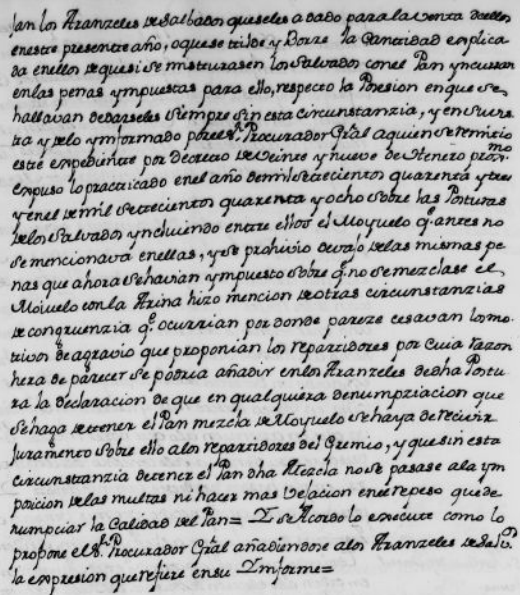 lan los Aranzeles de Salbados queseles a dado para la venta de ellos
en este presente año, o que se tilde y Borre la Cantidad explica
da en ellos de que si se misturasen los salvados con el Pan yncurran
en las penas ympuestas para ello, respecto la Posesion en que se
hallavan de darseles siempre sin esta circunstanzia, y en su vis
ta y de lo ynformado por el Sr. Procurador Gral a quien se remitio
este expediente por decreto de veinte y nueve de Henero proxmo.
expuso lo practicado en el año de mil setecientos quarenta y tres
y en el de mil setecientos quarenta y ocho sobre las Posturas
de los Salvados yncluiendo entre ellos el Moyuelo q.e antes no
se mencionava en ellas, y se prohivio devajo de las mismas pe
nas que ahora se havian ympuesto sobre q.e no se mezclase el
Moiuelo con la Arina hizo mencion de otras circunstanzias
de congruenzia q.e ocurrian por donde pareze cesavan los mo
tivos de agravio que proponian los repartidores por cuia razon
hera de parecer se podria añadir en los Aranzeles de dha Postu
ra la declaracion de que en qualquiera denumpziacion que
se haga de tener el Pan mezcla de Moyuelo se haya de recivir
Juramento sobre ello a los repartidores del Gremio, y que sin esta
circunstanzia de tener el Pan dha Mezcla no se pasase a la ym
posicion de las multas ni hacer mas vejacion en el repeso que de
numpciar la Calidad del Pan= Y se Acordo lo execute como lo
propone el Sr. Procurador Gral añadiendose a los Aranzeles de Salvs.
la expresion que refiere en su Ynforme=